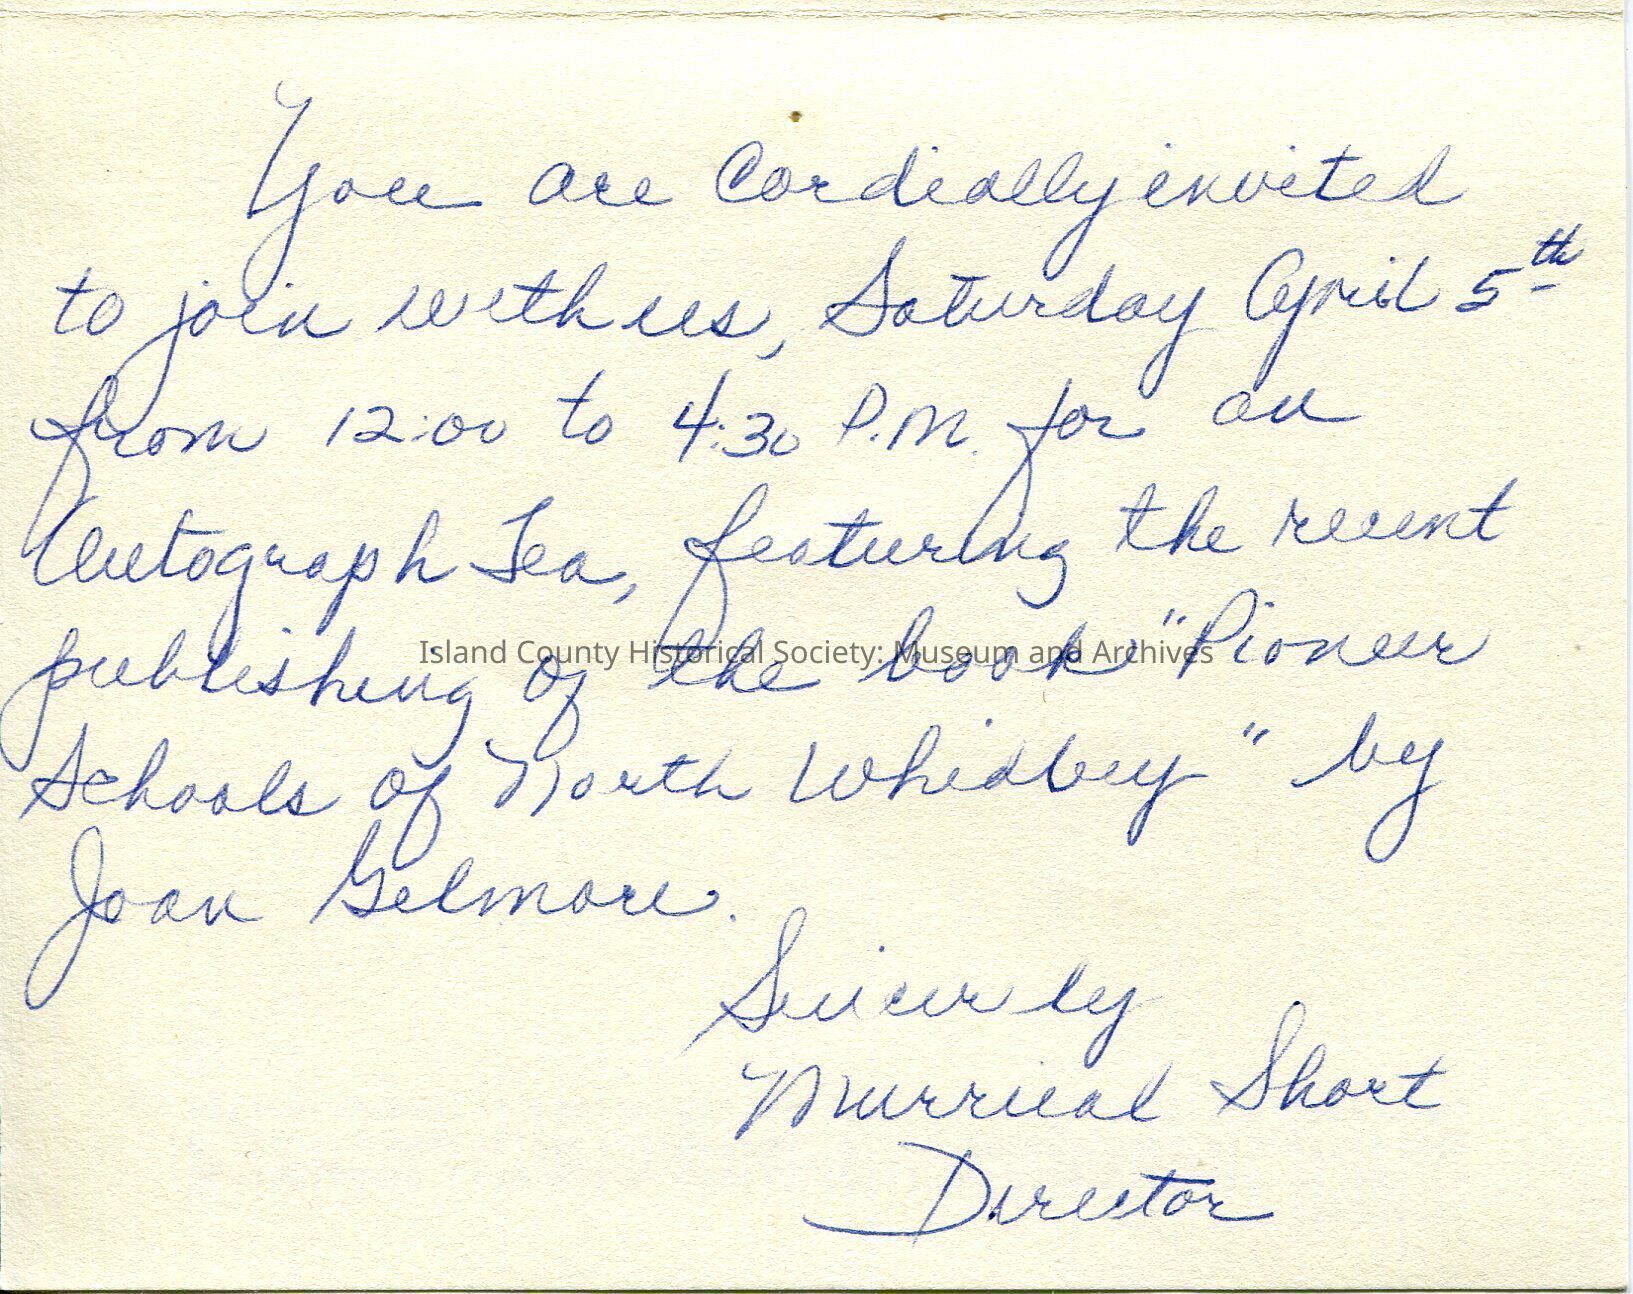 You are Cordially invited
to join with us, Saturday April 5th
from 12:00 to 4:30 P.M. for an
Autograph Tea, featuring the recent
publishing of the book "Pioneer
Island County Historical Society: Museum and Archives
Schools of North Whidbey" by
Joan Gelmore.
Sincerly
Murrieal Short
Director